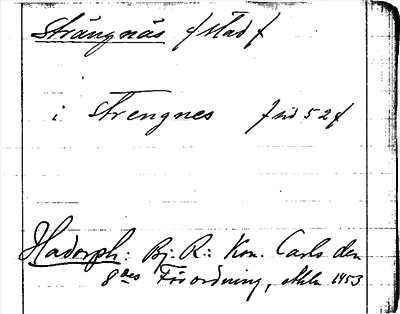 Strängnäs /stad/
i Strengnes /sid 52/
Hadorph: Bj. R.: Kon. Carls den
8des Förordning, Sthlm 1453